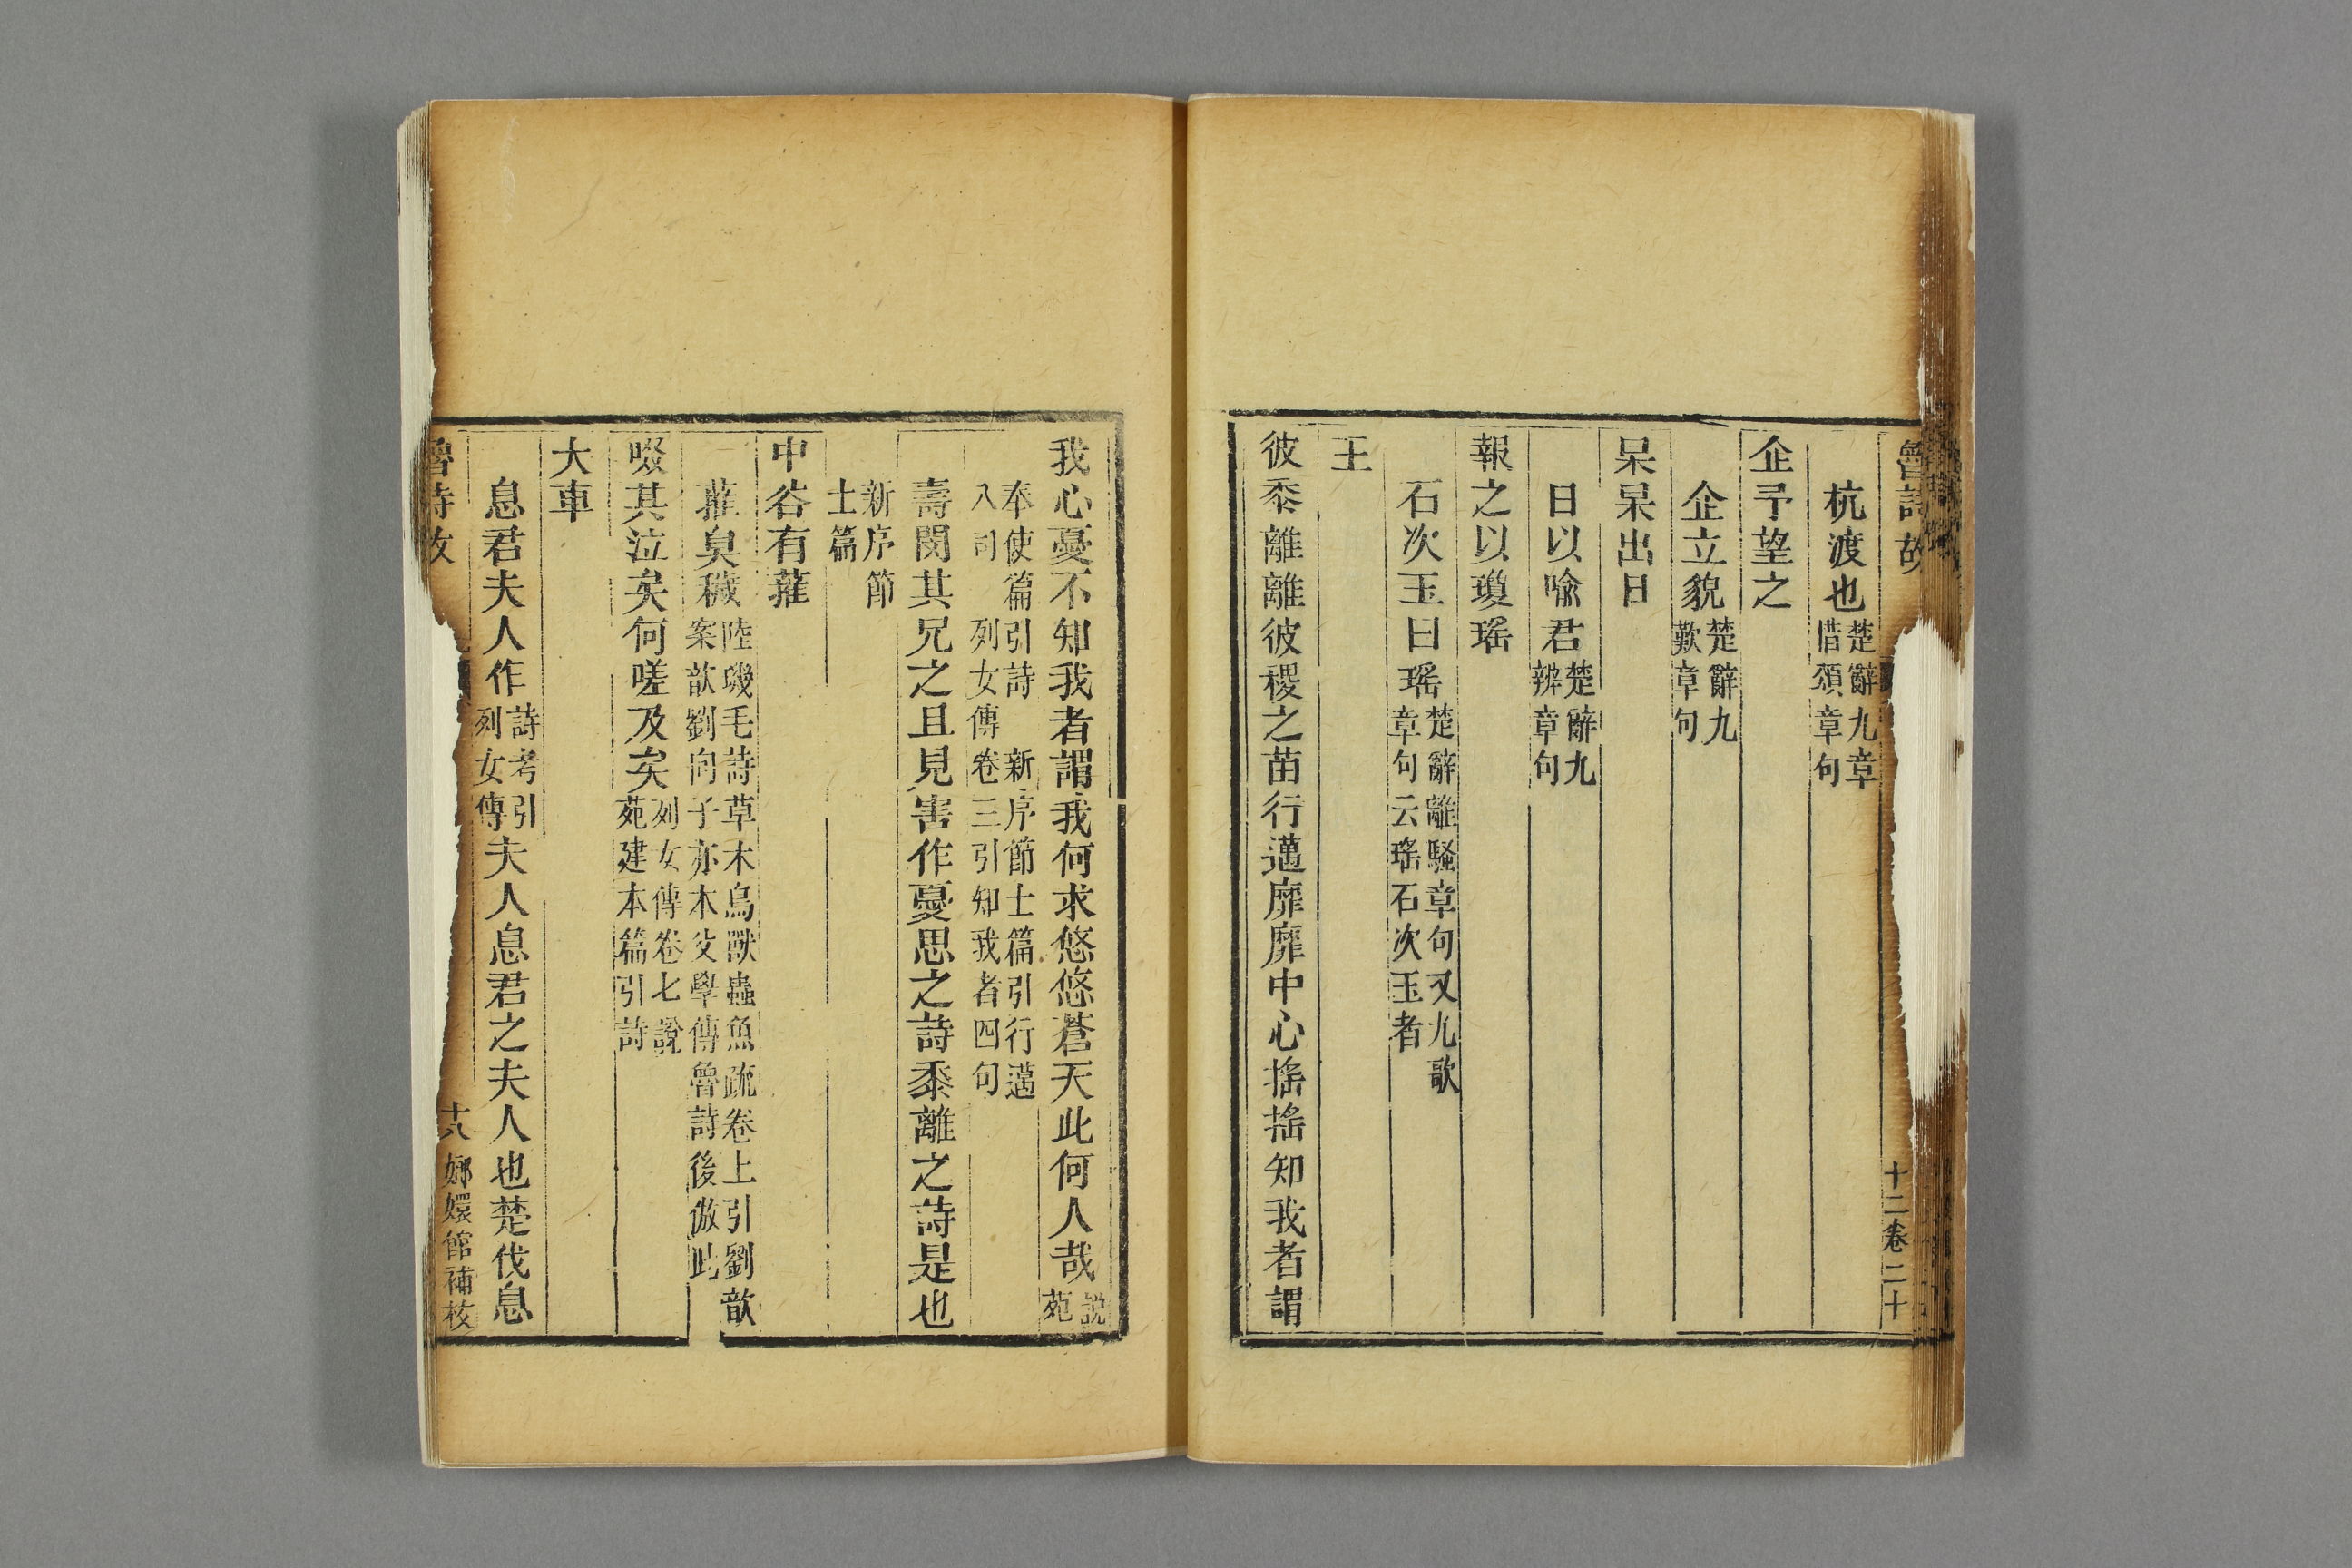 魯詩故
十二卷二十
杭渡也楚辭九章惜頌章句
企予望之
企立貌楚辭九歎章句
杲杲出日
日以喻君楚辭九辨章句
報之以瓊瑤
石次玉曰瑤楚辭離騷章句又九歌章句云瑤石次玉者
王
彼黍離離彼稷之苗行邁靡靡中心搖搖知我者謂
我心憂不知我者謂我何求悠悠蒼天此何人哉說苑
奉使篇引詩 新序節士篇引行邁八司 列女傳卷三引知我者四句
壽閔其兄之且見害作憂思之詩黍離之詩是也
新序節士篇
中谷有蓷
蓷臭穢陸璣毛詩草木鳥獸蟲魚疏卷上引劉歆案歆劉向子亦木父學傳魯詩後倣此
啜其泣矣何嗟及矣列女傳卷七 說苑建本篇引詩
大車
息君夫人作詩考引列女傳夫人息君之夫人也楚伐息
魯詩故
十八 嫏嬛館補校